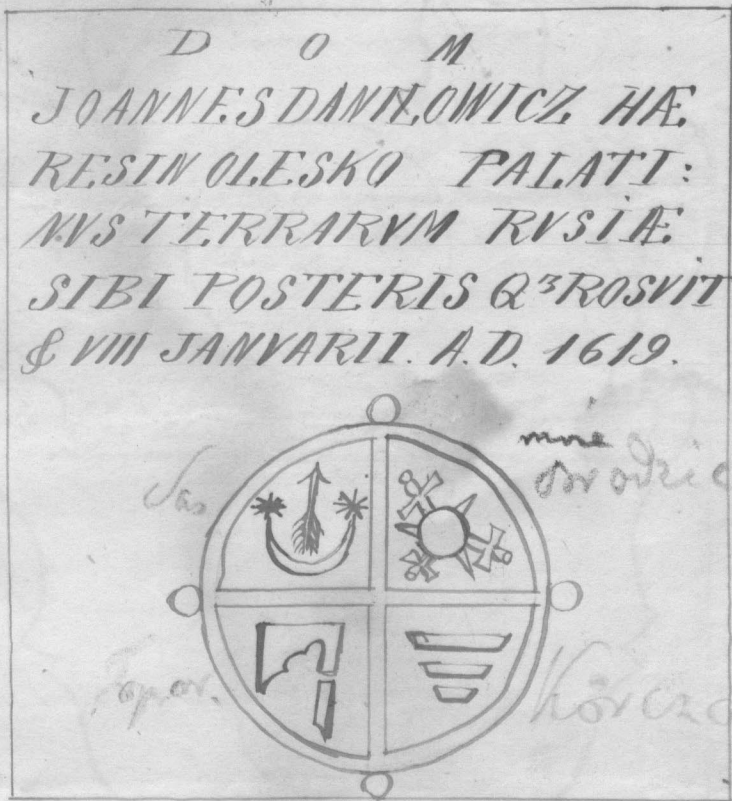 D O M
JOANNES DANIŁOWICZ HÆ
RES IN OLESKO PALATI:
NVS TERRARVM RVSIÆ
SIBI POSTERIS Qʒ ROSVIT
VIII JANVARII. A.D. 1619.
mnie
Sas
Topor.
Korcza